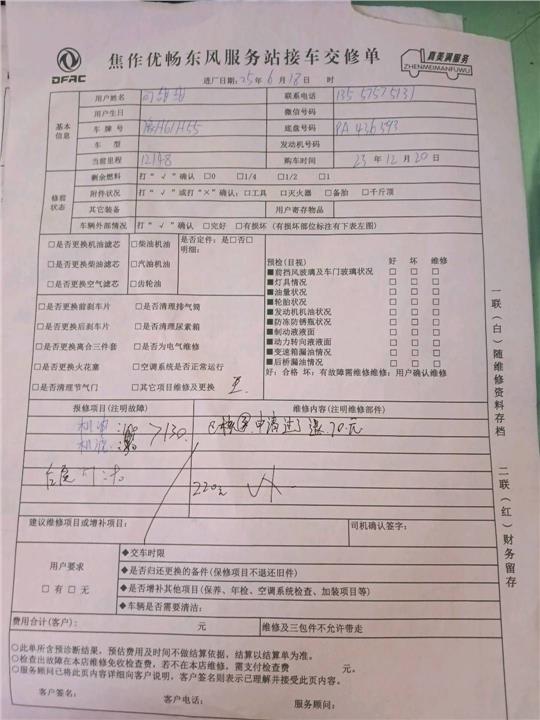 DFAC
焦作优畅东风服务站接车交修单
真美满服务
ZHENMEIMANFUWU
进厂日期: 25 年 6 月 18 日 时
基本信息
用户姓名 联系电话 135 5757 5131
用户生日 微信号码
车牌号 H61H55 底盘号码 PA436393
车型 发动机号码
当前里程 12148 购车时间 23 年 12 月 20 日
修前状态
剩余燃料 打“√”确认 □0 □1/4 □1/2 □1
附件状况 打“√”或打“×”确认:□工具 □灭火器 □备胎 □千斤顶
其它装备 用户寄存物品
车辆外部情况 打“√”确认 □完好 □有损坏 (有损坏部位标注有下表左图)
□是否更换机油滤芯 □柴油机油 是否定件: 是□否□
明细:
□是否更换柴油滤芯 □汽油机油
□是否更换空气滤芯 □齿轮油
预检(目视) 好 坏 维修
■前挡风玻璃及车门玻璃状况 □ □ □
■灯具情况 □ □ □
■油量状况 □ □ □
■轮胎状况 □ □ □
■发动机机油状况 □ □ □
■防冻防锈瓶状况 □ □ □
■制动液液面 □ □ □
■动力转向液液面 □ □ □
■变速箱漏油情况 □ □ □
■后桥漏油情况 □ □ □
好: 合格 坏: 有故障需维修维修: 用户确认维修
□是否更换前刹车片 □是否清理排气筒
□是否更换后刹车片 □是否清理尿素箱
□是否更换离合三件套 □是否为电气维修
□是否更换火花塞 □空调系统是否正常运行
□是否清理节气门 □其它项目维修及更换
报修项目(注明故障) 维修内容(注明维修部件)
机油 >130 申请过了 70元
机滤
220元
建议维修项目或增补项目: 司机确认签字:
用户要求
□有 □无
◆交车时限
◆是否归还更换的备件(保修项目不退还旧件)
◆是否增补其他项目(保养、年检、空调系统检查、加装项目等)
◆车辆是否需要清洁:
费用合计(客户): 元 维修及三包件不允许带走
○此单所含预诊断结果,预估费用及时间不做结算依据,结算以结算单为准。
○检查出故障在本店维修免收检查费,若不在本店维修,需支付检查费 元。
○服务顾问已将此页内容详细向客户说明,客户签名则表示已理解并接受此页内容。
客户签名: 客户电话: 服务顾问:
一联(白)随维修资料存档
二联(红)财务留存